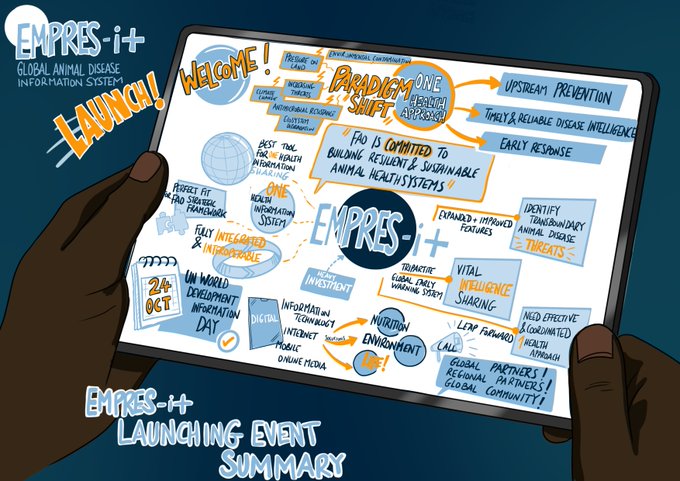 EMPRES-i+
GLOBAL ANIMAL DISEASE
INFORMATION SYSTEM
LAUNCH!
WELCOME!
PRESSURE ON
LAND
ENVIRONMENTAL CONTAMINATION
CLIMATE
CHANGE
INCREASING
THREATS
ANTIMICROBIAL RESISTANCE
ECOSYSTEM
DEGRADATION
PARADIGM
SHIFT
ONE
HEALTH
APPROACH
UPSTREAM PREVENTION
TIMELY & RELIABLE DISEASE INTELLIGENCE
EARLY RESPONSE
"FAO IS COMMITTED TO
BUILDING RESILIENT & SUSTAINABLE
ANIMAL HEALTH SYSTEMS"
BEST TOOL
FOR ONE HEALTH
INFORMATION
SHARING
PERFECT FIT
FOR FAO STRATEGIC
FRAMEWORK
ONE
HEALTH
INFORMATION
SYSTEM
FULLY INTEGRATED
& INTEROPERABLE
EMPRES-i+
HEAVY
INVESTMENT
EXPANDED + IMPROVED
FEATURES
IDENTIFY
TRANSBOUNDARY
ANIMAL DISEASE
THREATS
TRIPARTITE
GLOBAL EARLY
WARNING SYSTEM
VITAL
INTELLIGENCE
SHARING
24
OCT
UN WORLD
DEVELOPMENT
INFORMATION
DAY
DIGITAL
INFORMATION
TECHNOLOGY
INTERNET
MOBILE
ONLINE MEDIA
SOLUTIONS
NUTRITION
ENVIRONMENT
LIFE!
LEAP FORWARD
NEED EFFECTIVE
& COORDINATED
1 HEALTH
APPROACH
CALL
GLOBAL PARTNERS!
REGIONAL PARTNERS!
GLOBAL COMMUNITY!
EMPRES-i+
LAUNCHING EVENT
SUMMARY